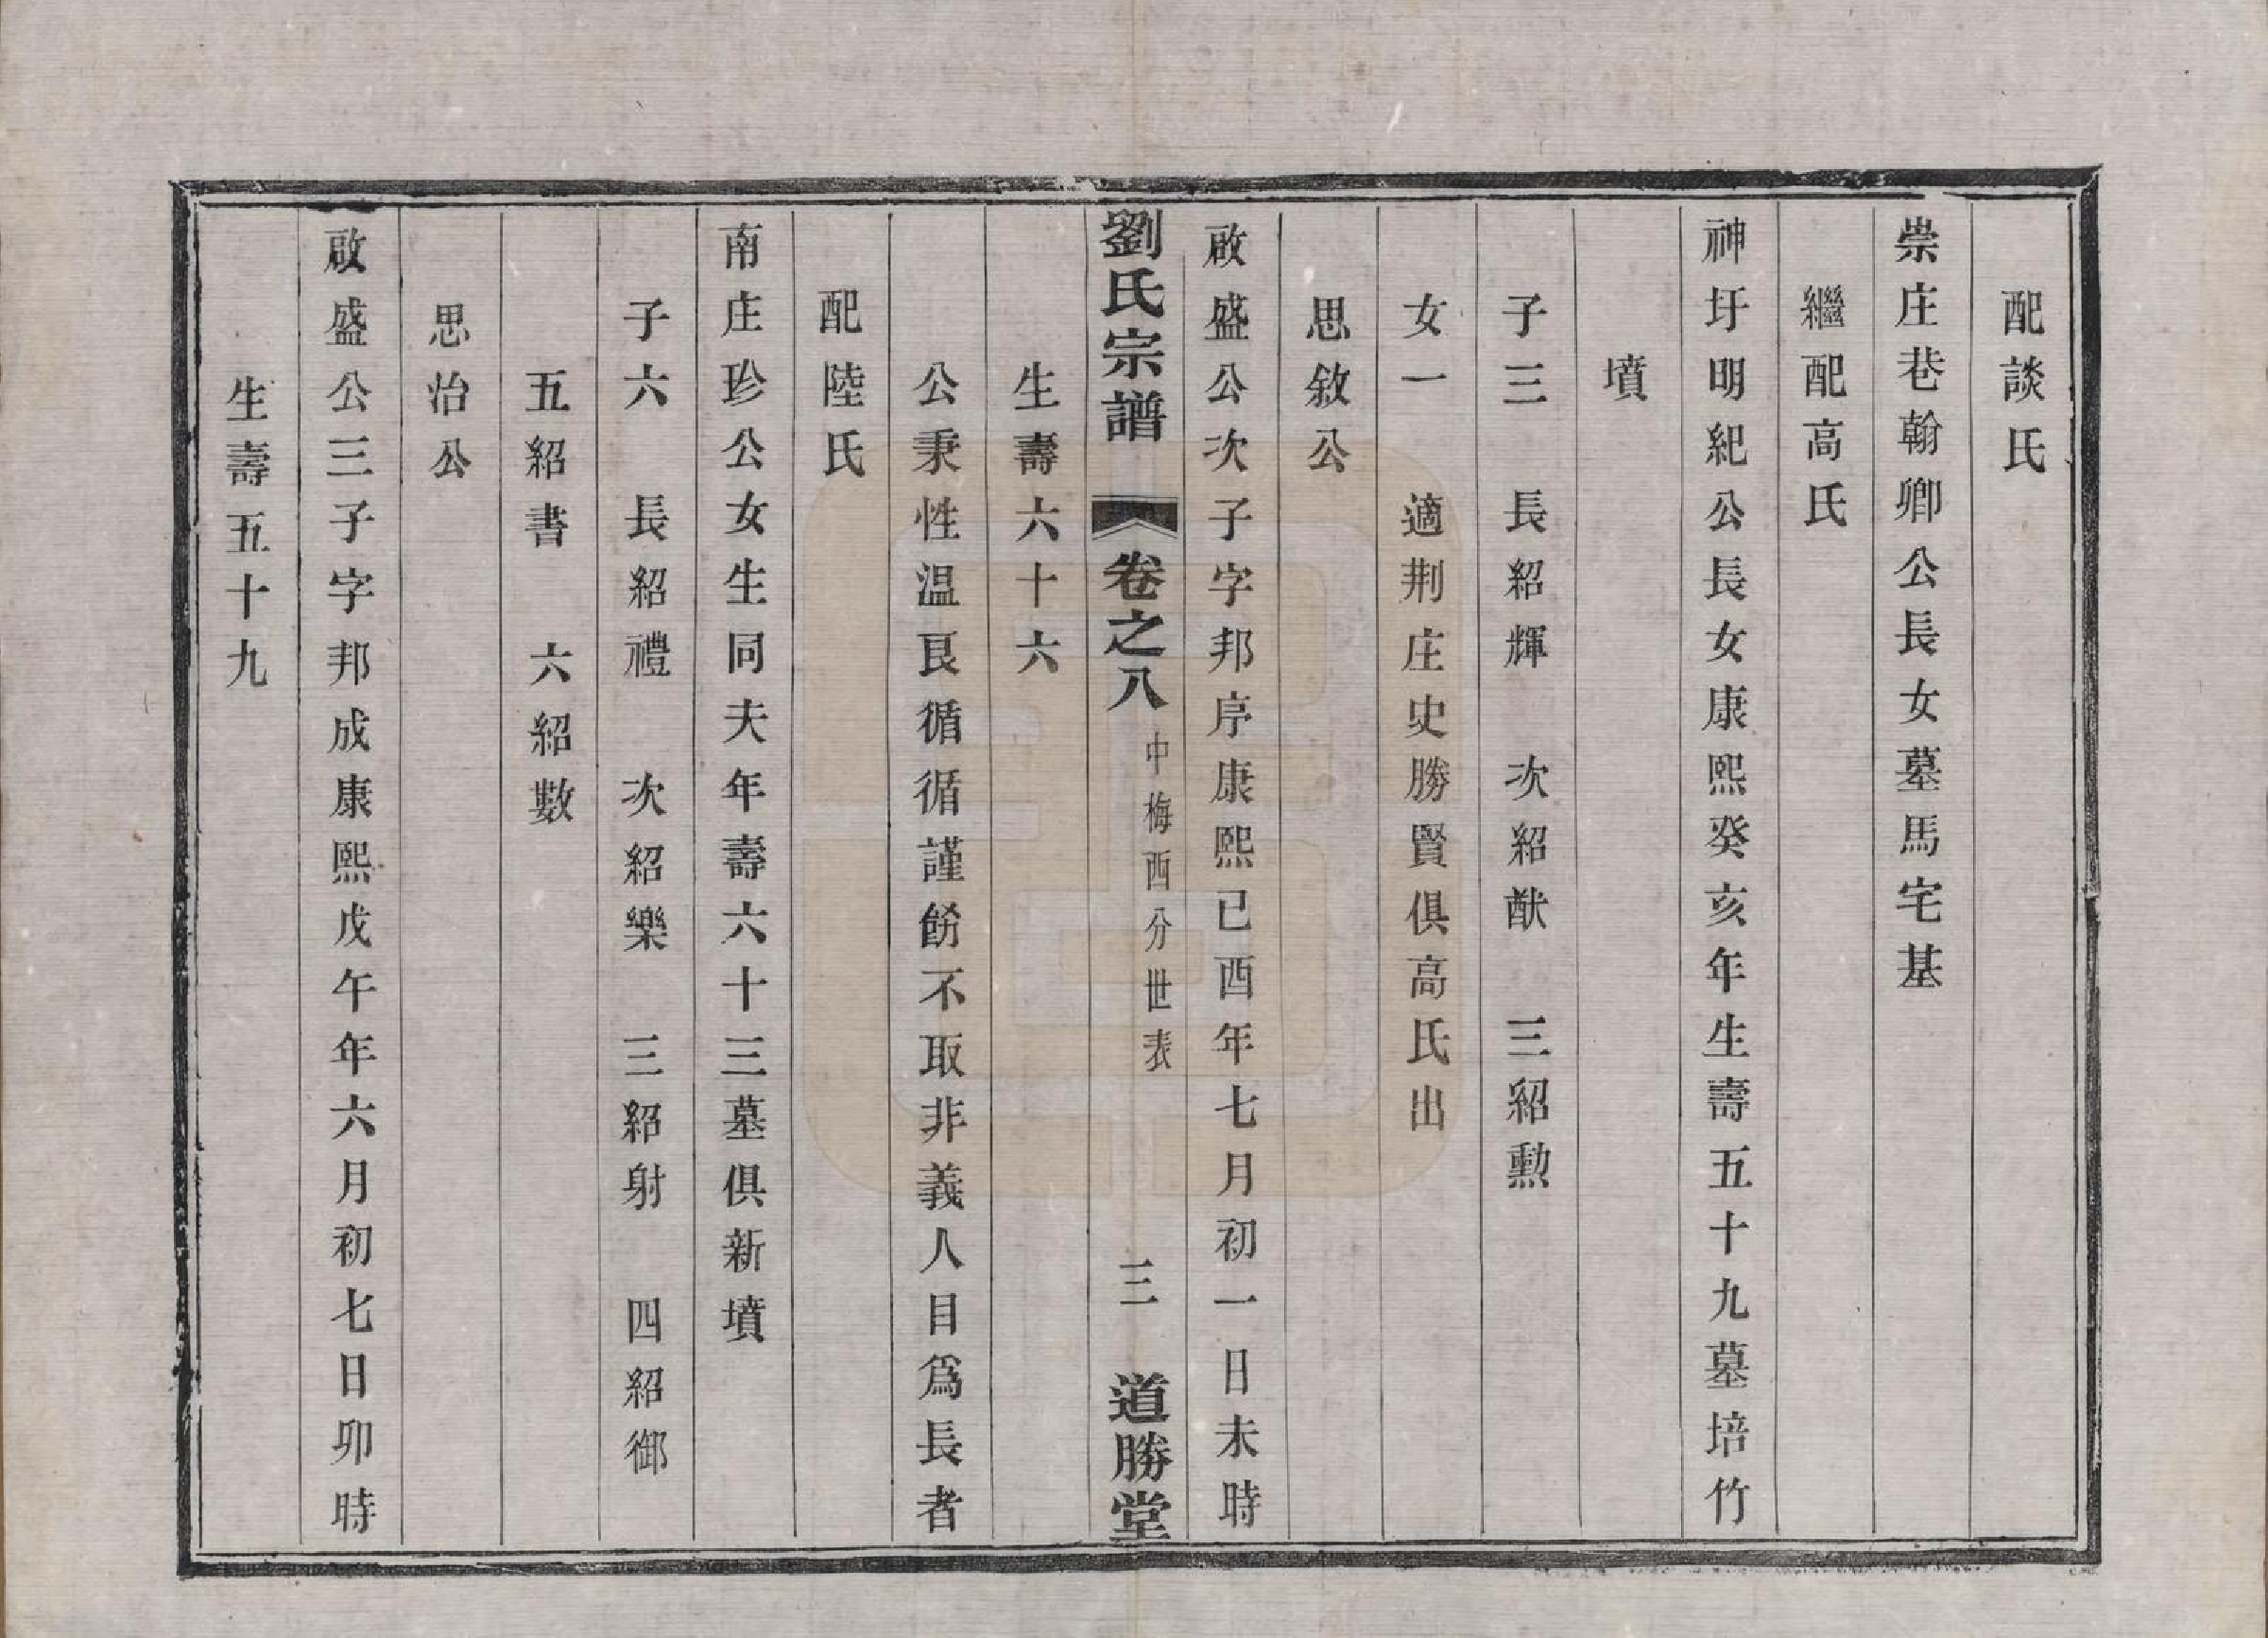 配談氏
崇庄巷翰卿公長女墓馬宅基
繼配高氏
神圩明紀公長女康熙癸亥年生壽五十九墓培竹
墳
子三　長紹輝　次紹猷　三紹勲
女一　適荆庄史勝賢俱高氏出
思敘公
啟盛公次子字邦序康熙己酉年七月初一日未時
劉氏宗譜　卷之八　中梅西分世表　三　道勝堂
生壽六十六
公秉性温良循循謹飭不取非義人目爲長者
配陸氏
南庄珍公女生同夫年壽六十三墓俱新墳
子六　長紹禮　次紹樂　三紹射　四紹御
五紹書　六紹數
思治公
啟盛公三子字邦成康熙戊午年六月初七日卯時
生壽五十九